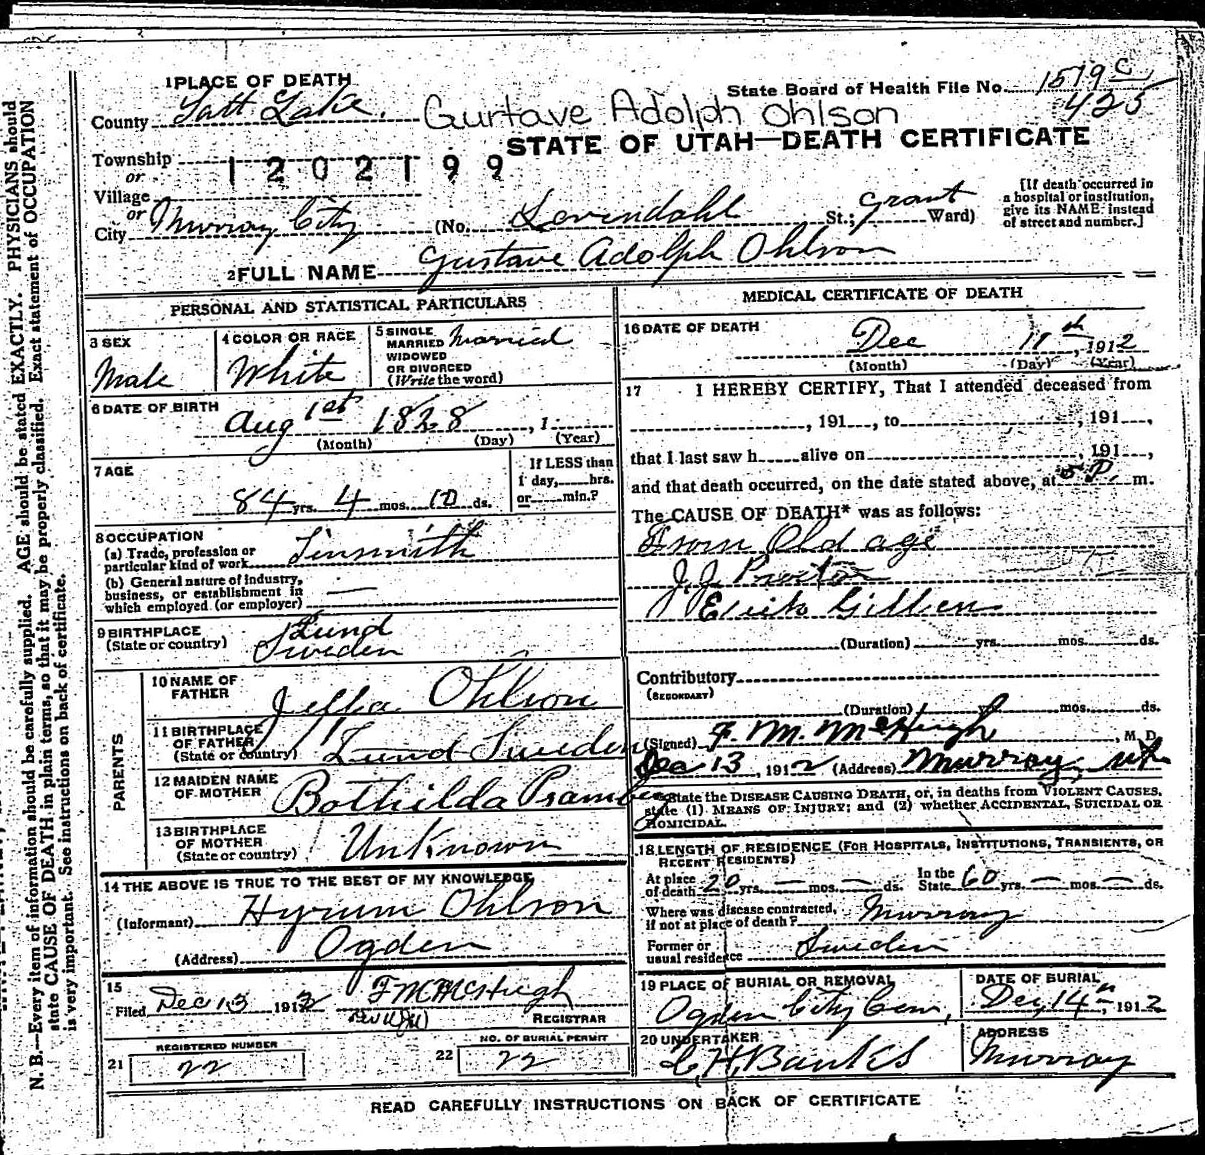 1 PLACE OF DEATH
State Board of Health File No. 1579 C
425
County Salt Lake.
Gurtave Adolph Ohlson
STATE OF UTAH—DEATH CERTIFICATE
Township
or
1202199
Village
or
City Murray City (No. Lovendahl St.; Grant Ward)
[If death occurred in
a hospital or institution,
give its NAME instead
of street and number.]
2 FULL NAME Gustave Adolph Ohlson
PERSONAL AND STATISTICAL PARTICULARS
3 SEX
Male
4 COLOR OR RACE
White
5 SINGLE
MARRIED
WIDOWED
OR DIVORCED
(Write the word)
Married
6 DATE OF BIRTH
Aug 1st 1828, 1
(Month) (Day) (Year)
7 AGE
84 yrs. 4 mos. 10 ds.
If LESS than
1 day, hrs.
or min.?
8 OCCUPATION
(a) Trade, profession or
particular kind of work Tinsmith
(b) General nature of industry,
business, or establishment in
which employed (or employer)
9 BIRTHPLACE
(State or country)
Lund
Sweden
PARENTS
10 NAME OF
FATHER
Ohlson
11 BIRTHPLACE
OF FATHER
(State or country)
Lund Sweden
12 MAIDEN NAME
OF MOTHER
Bothilda
13 BIRTHPLACE
OF MOTHER
(State or country)
Unknown
14 THE ABOVE IS TRUE TO THE BEST OF MY KNOWLEDGE
(Informant) Hyrum Ohlson
(Address) Ogden
15
Filed Dec 13 1912 F M McHugh
REGISTRAR
REGISTERED NUMBER
21 22
NO. OF BURIAL PERMIT
22 22
MEDICAL CERTIFICATE OF DEATH
16 DATE OF DEATH
Dec 11th, 1912
(Month) (Day) (Year)
17 I HEREBY CERTIFY, That I attended deceased from
, 191 , to , 191 ,
that I last saw h alive on , 191 ,
and that death occurred, on the date stated above, at 5 P. m.
The CAUSE OF DEATH* was as follows:
From Old age
J. J. Proctor
Gillen
(Duration) yrs. mos. ds.
Contributory
(SECONDARY)
(Duration) yrs. mos. ds.
(Signed) F. M. McHugh, M. D.
Dec 13, 1912 (Address) Murray, Ut
State the DISEASE CAUSING DEATH, or, in deaths from VIOLENT CAUSES,
state (1) MEANS OF INJURY; and (2) whether ACCIDENTAL, SUICIDAL OR
HOMICIDAL.
18 LENGTH OF RESIDENCE (FOR HOSPITALS, INSTITUTIONS, TRANSIENTS, OR
RECENT RESIDENTS)
At place
of death 20 yrs. — mos. — ds.
In the
State 60 yrs. — mos. — ds.
Where was disease contracted,
if not at place of death? Murray
Former or
usual residence Sweden
19 PLACE OF BURIAL OR REMOVAL
Ogden City Cem,
DATE OF BURIAL
Dec, 14th, 1912
20 UNDERTAKER
H. Banks
ADDRESS
Murray
READ CAREFULLY INSTRUCTIONS ON BACK OF CERTIFICATE
N. B.—Every item of information should be carefully supplied. AGE should be stated EXACTLY. PHYSICIANS should
state CAUSE OF DEATH in plain terms, so that it may be properly classified. Exact statement of OCCUPATION
is very important. See instructions on back of certificate.